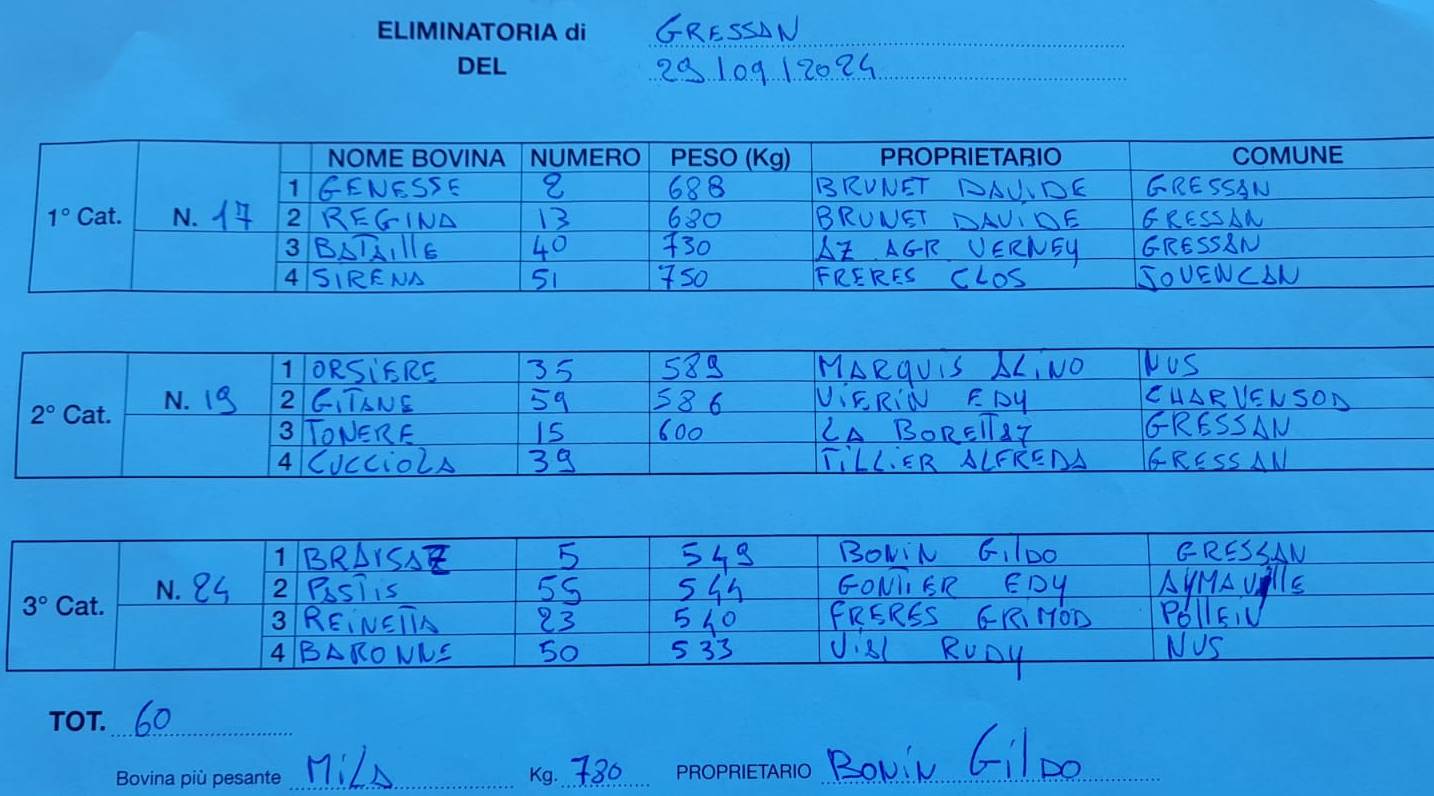 ELIMINATORIA di GRESSAN
DEL 29/09/2024
NOME BOVINA NUMERO PESO (Kg) PROPRIETARIO COMUNE
1 GENESSE 2 688 BRUNET DAVIDE GRESSAN
1° Cat. N. 17 2 REGINA 13 680 BRUNET DAVIDE GRESSAN
3 BATAILLE 40 730 AZ AGR VERNEY GRESSAN
4 SIRENA 51 750 FRERES CLOS JOVENCAN
1 ORSIERE 35 589 MARQUIS ALINO NUS
2° Cat. N. 19 2 GITANE 59 586 VIERIN EDY CHARVENSOD
3 TONERE 15 600 LA BORETTAZ GRESSAN
4 CUCCIOLA 39 TILLIER ALFREDA GRESSAN
1 BRAISAZ 5 549 BONIN GILDO GRESSAN
3° Cat. N. 24 2 PASTIS 55 544 GONTIER EDY AYMAVILLE
3 REINETTA 23 540 FRERES GRIMOD POLLEIN
4 BARONNE 50 533 RUDY NUS
TOT. 60
Bovina più pesante MILA Kg. 780 PROPRIETARIO BONIN GILDO